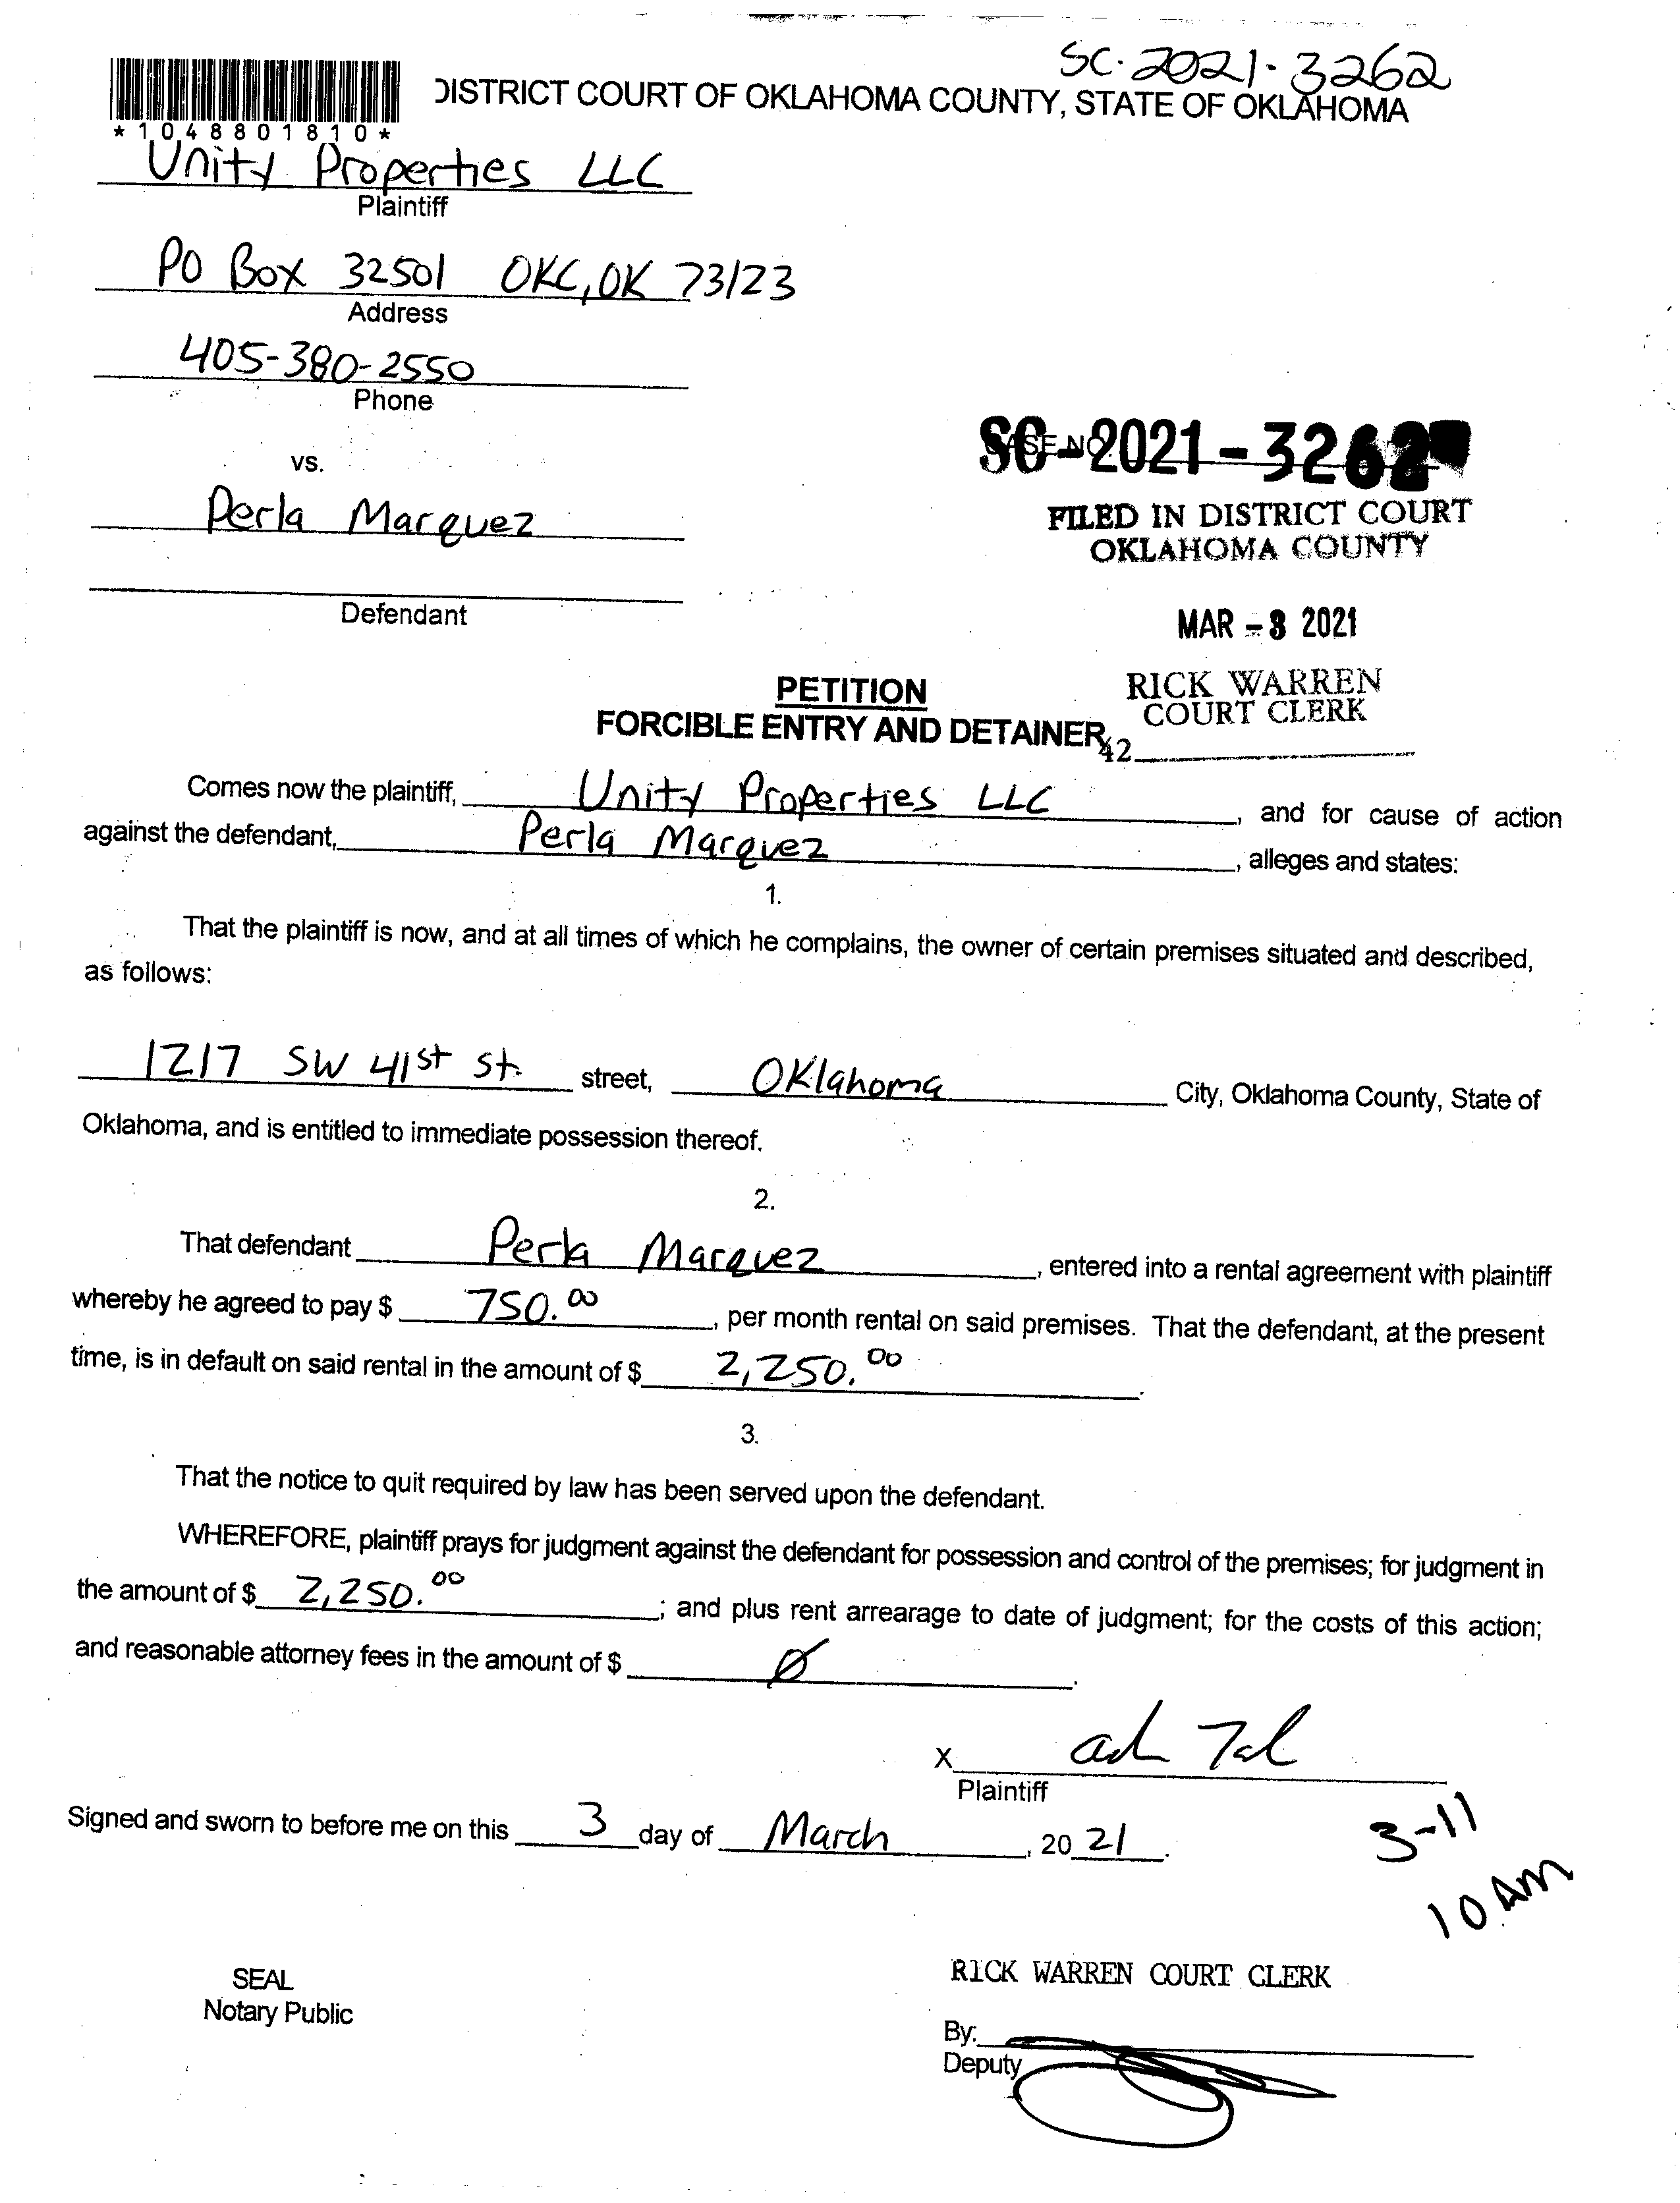 SC-2021-3262
DISTRICT COURT OF OKLAHOMA COUNTY, STATE OF OKLAHOMA
*1048801810*
Unity Properties LLC
Plaintiff
PO Box 32501 OKC, OK 73123
Address
405-380-2550
Phone
vs.
CASE NO.
SC-2021-3262
Perla Marquez
FILED IN DISTRICT COURT
OKLAHOMA COUNTY
Defendant
MAR - 3 2021
PETITION
RICK WARREN
COURT CLERK
FORCIBLE ENTRY AND DETAINER
42
Comes now the plaintiff, Unity Properties LLC, and for cause of action
against the defendant, Perla Marquez, alleges and states:
1.
That the plaintiff is now, and at all times of which he complains, the owner of certain premises situated and described,
as follows:
1217 SW 41st St. street, Oklahoma City, Oklahoma County, State of
Oklahoma, and is entitled to immediate possession thereof.
2.
That defendant Perla Marquez, entered into a rental agreement with plaintiff
whereby he agreed to pay $ 750.00, per month rental on said premises. That the defendant, at the present
time, is in default on said rental in the amount of $ 2,250.00.
3.
That the notice to quit required by law has been served upon the defendant.
WHEREFORE, plaintiff prays for judgment against the defendant for possession and control of the premises; for judgment in
the amount of $ 2,250.00; and plus rent arrearage to date of judgment; for the costs of this action;
and reasonable attorney fees in the amount of $ Ø.
X
Plaintiff
Signed and sworn to before me on this 3 day of March, 2021.
3-11
10 AM
RICK WARREN COURT CLERK
SEAL
Notary Public
By:
Deputy